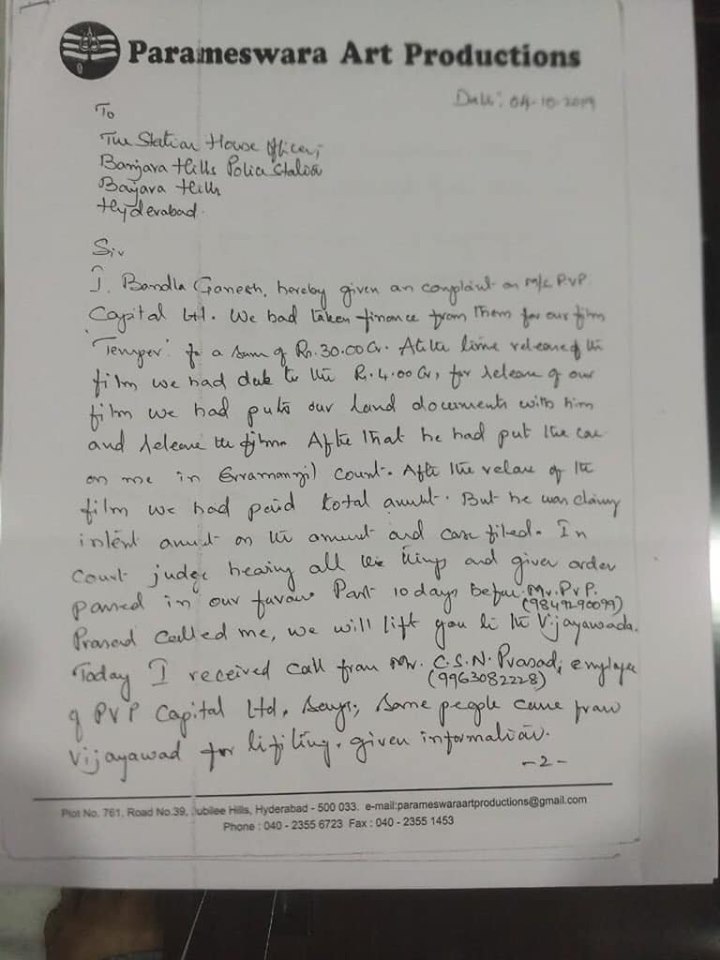 Parameswara Art Productions
Date: 04-10-2019
To
The Station House Officer,
Banjara Hills Police Station
Banjara Hills
Hyderabad.
Sir
I. Bandla Ganesh, hereby given an complaint on M/s. PVP
Capital Ltd. We had taken finance from them for our film
'Temper' for a sum of Rs. 30.00 Cr. At the time release of the
film we had due to the Rs. 4.00 Cr, for release of our
film we had puts our land documents with him
and release the film. After that he had put the case
on me in Erramanzil Court. After the release of the
film we had paid total amunt. But he was claimy
intent amunt on the amount and case filed. In
Court judge hearing all the things and given order
passed in our favour Past 10 days before Mr. P.V.P.
(9849290099)
Prasad called me, we will lift you to the Vijayawada.
Today I received call from Mr. C.S.N. Prasad, employee
(9963082228)
of PVP Capital Ltd, says, some people came from
Vijayawad for lifiting, given information.
-2-
Plot No. 761, Road No.39, Jubilee Hills, Hyderabad - 500 033. e-mail:parameswaraartproductions@gmail.com
Phone : 040 - 2355 6723 Fax : 040 - 2355 1453